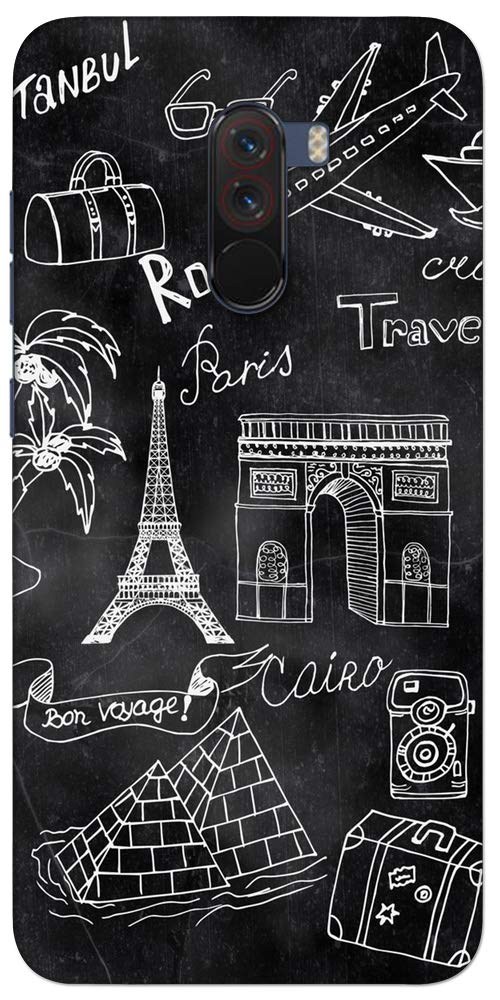 TANBUL
Ro
cru
Trave
Paris
Cairo
Bon voyage!